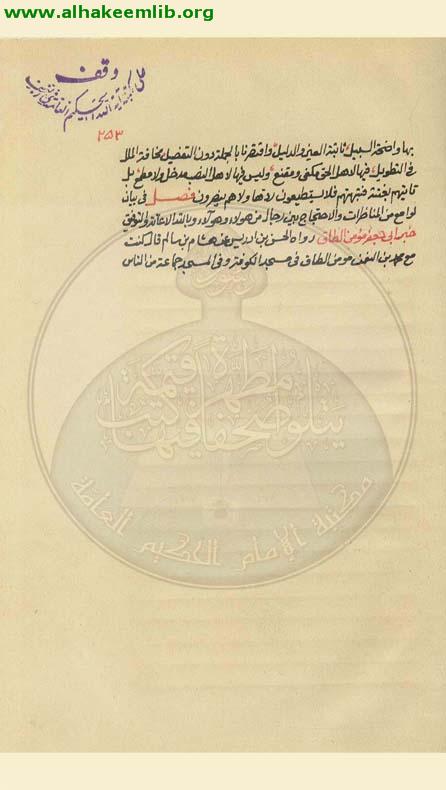 www.alhakeemlib.org
وقف
على مكتبة آية الله الحكيم العامة
٢٥٣
بها واضحة السبيل ثابتة العين والدليل واقتصرنا بالجملة دون التفصيل مخافة الملل
فى التطويل فيها لاهل الحق مكفى ومقنع وليس فيها لاهل مدخل ولا مطمع بل
تاتيهم بغتة فتبهتهم فلا يستطيعون ردها ولا هم ينظرون فصل فى بيان
لوامع من المناظرات والاحتجاج بين رجال من هولاء وهولاء وبالله الاعانة والتوفيق
خبر ابى جعفر مومن الطاق رواه الحسن بن ادريس عن هشام بن سالم قال كنت
مع محمد بن النعمن مومن الطاق فى مسجد الكوفة وفى المسجد جماعة من الناس
رسول
يتلو صحفا مطهرة فيها كتب قيمة
مكتبة الإمام الحكيم العامة